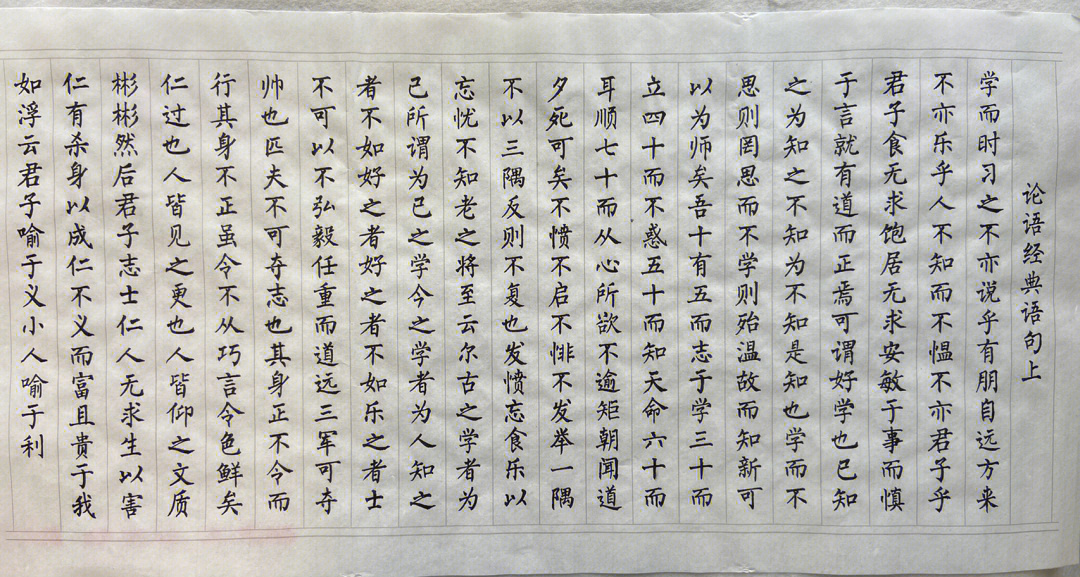 论语经典语句上
学而时习之不亦说乎有朋自远方来
不亦乐乎人不知而不愠不亦君子乎
君子食无求饱居无求安敏于事而慎
于言就有道而正焉可谓好学也已知
之为知之不知为不知是知也学而不
思则罔思而不学则殆温故而知新可
以为师矣吾十有五而志于学三十而
立四十而不惑五十而知天命六十而
耳顺七十而从心所欲不逾矩朝闻道
夕死可矣不愤不启不悱不发举一隅
不以三隅反则不复也发愤忘食乐以
忘忧不知老之将至云尔古之学者为
己所谓为己之学今之学者为人知之
者不如好之者好之者不如乐之者士
不可以不弘毅任重而道远三军可夺
帅也匹夫不可夺志也其身正不令而
行其身不正虽令不从巧言令色鲜矣
仁过也人皆见之更也人皆仰之文质
彬彬然后君子志士仁人无求生以害
仁有杀身以成仁不义而富且贵于我
如浮云君子喻于义小人喻于利